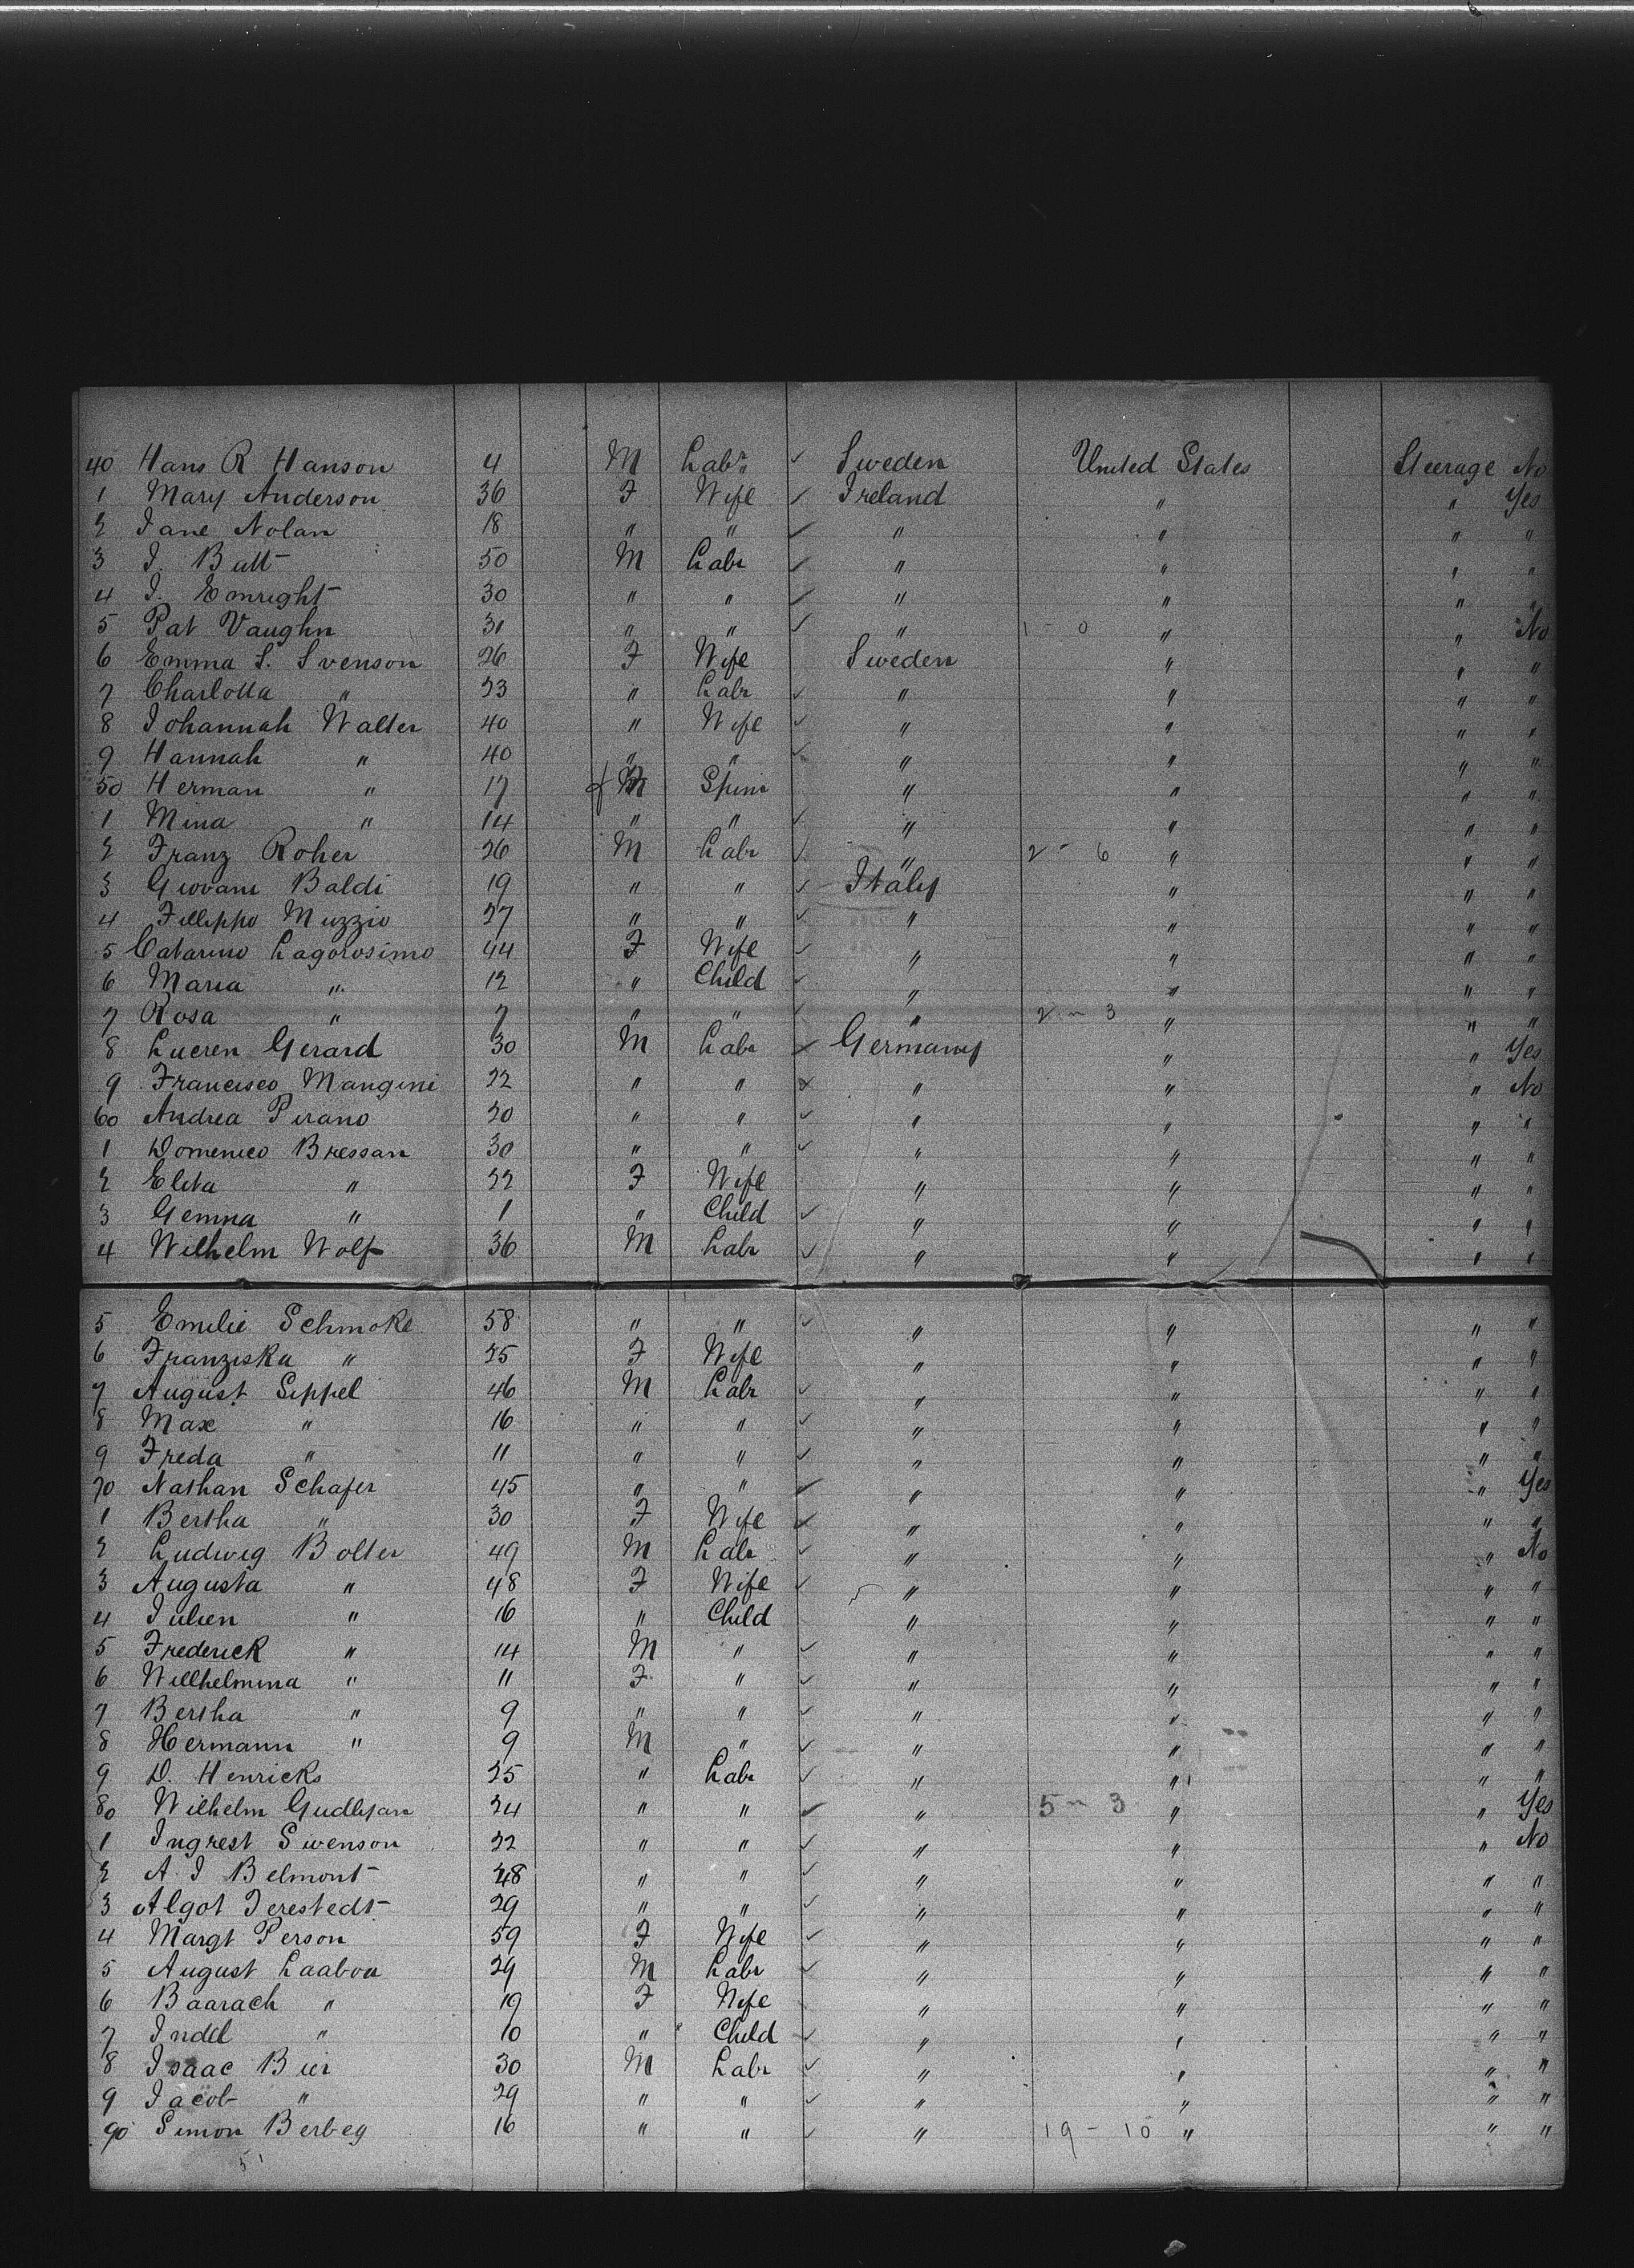 40 Hans R Hanson 4 M Labr Sweden United States Steerage No
1 Mary Anderson 36 F Wife Ireland " " Yes
2 Jane Nolan 18 " " " " " "
3 J. Butt 50 M Labr " " " "
4 J. Emright 30 " " " " " "
5 Pat Vaughn 31 " " " 1 - 0 " " No
6 Emma S. Svenson 26 F Wife Sweden " " "
7 Charlotta " 23 " Labr " " " "
8 Johannah Walter 40 " Wife " " " "
9 Hannah " 40 " " " " " "
50 Herman " 17 f M Spin " " " "
1 Mina " 14 " " " " " "
2 Franz Roher 26 M Labr " 2 - 6 " " "
3 Giovani Baldi 19 " " Italy " " "
4 Fillippo Muzzio 27 " " " " " "
5 Catarino Lagorosimo 44 F Wife " " " "
6 Maria " 12 " Child " " " "
7 Rosa " 7 " " " 2 - 3 " " "
8 Lucien Gerard 30 M Labr Germany " " Yes
9 Francisco Mangini 22 " " " " " No
60 Andrea Pirano 20 " " " " " "
1 Domenico Bressan 30 " " " " " "
2 Elita " 22 F Wife " " " "
3 Gemma " 1 " Child " " " "
4 Wilhelm Wolf 36 M Labr " " " "
5 Emilie Schmoke 58 " " " " " "
6 Franziska " 25 F Wife " " " "
7 August Sippel 46 M Labr " " " "
8 Max " 16 " " " " " "
9 Freda " 11 " " " " " "
70 Nathan Schafer 45 " " " " " Yes
1 Bertha " 30 F Wife " " " "
2 Ludwig Bolter 49 M Labr " " " No
3 Augusta " 48 F Wife " " " "
4 Julien " 16 " Child " " " "
5 Frederick " 14 M " " " " "
6 Willhelmina " 11 F " " " " "
7 Bertha " 9 " " " " " "
8 Hermann " 9 M " " " " "
9 D. Henricks 25 " Labr " " " "
80 Wilhelm Gudljan 24 " " " 5 - 3 " " Yes
1 Ingrest Swenson 22 " " " " " No
2 A. J Belmont 48 " " " " " "
3 Algot Terestedt 29 " " " " " "
4 Margt Person 59 F Wife " " " "
5 August Laabon 29 M Labr " " " "
6 Baarach " 19 F Wife " " " "
7 Indel " 10 " Child " " " "
8 Isaac Bier 30 M Labr " " " "
9 Jacob " 29 " " " " " "
90 Simon Berbeg 16 " " " 19 - 10 " " "
51